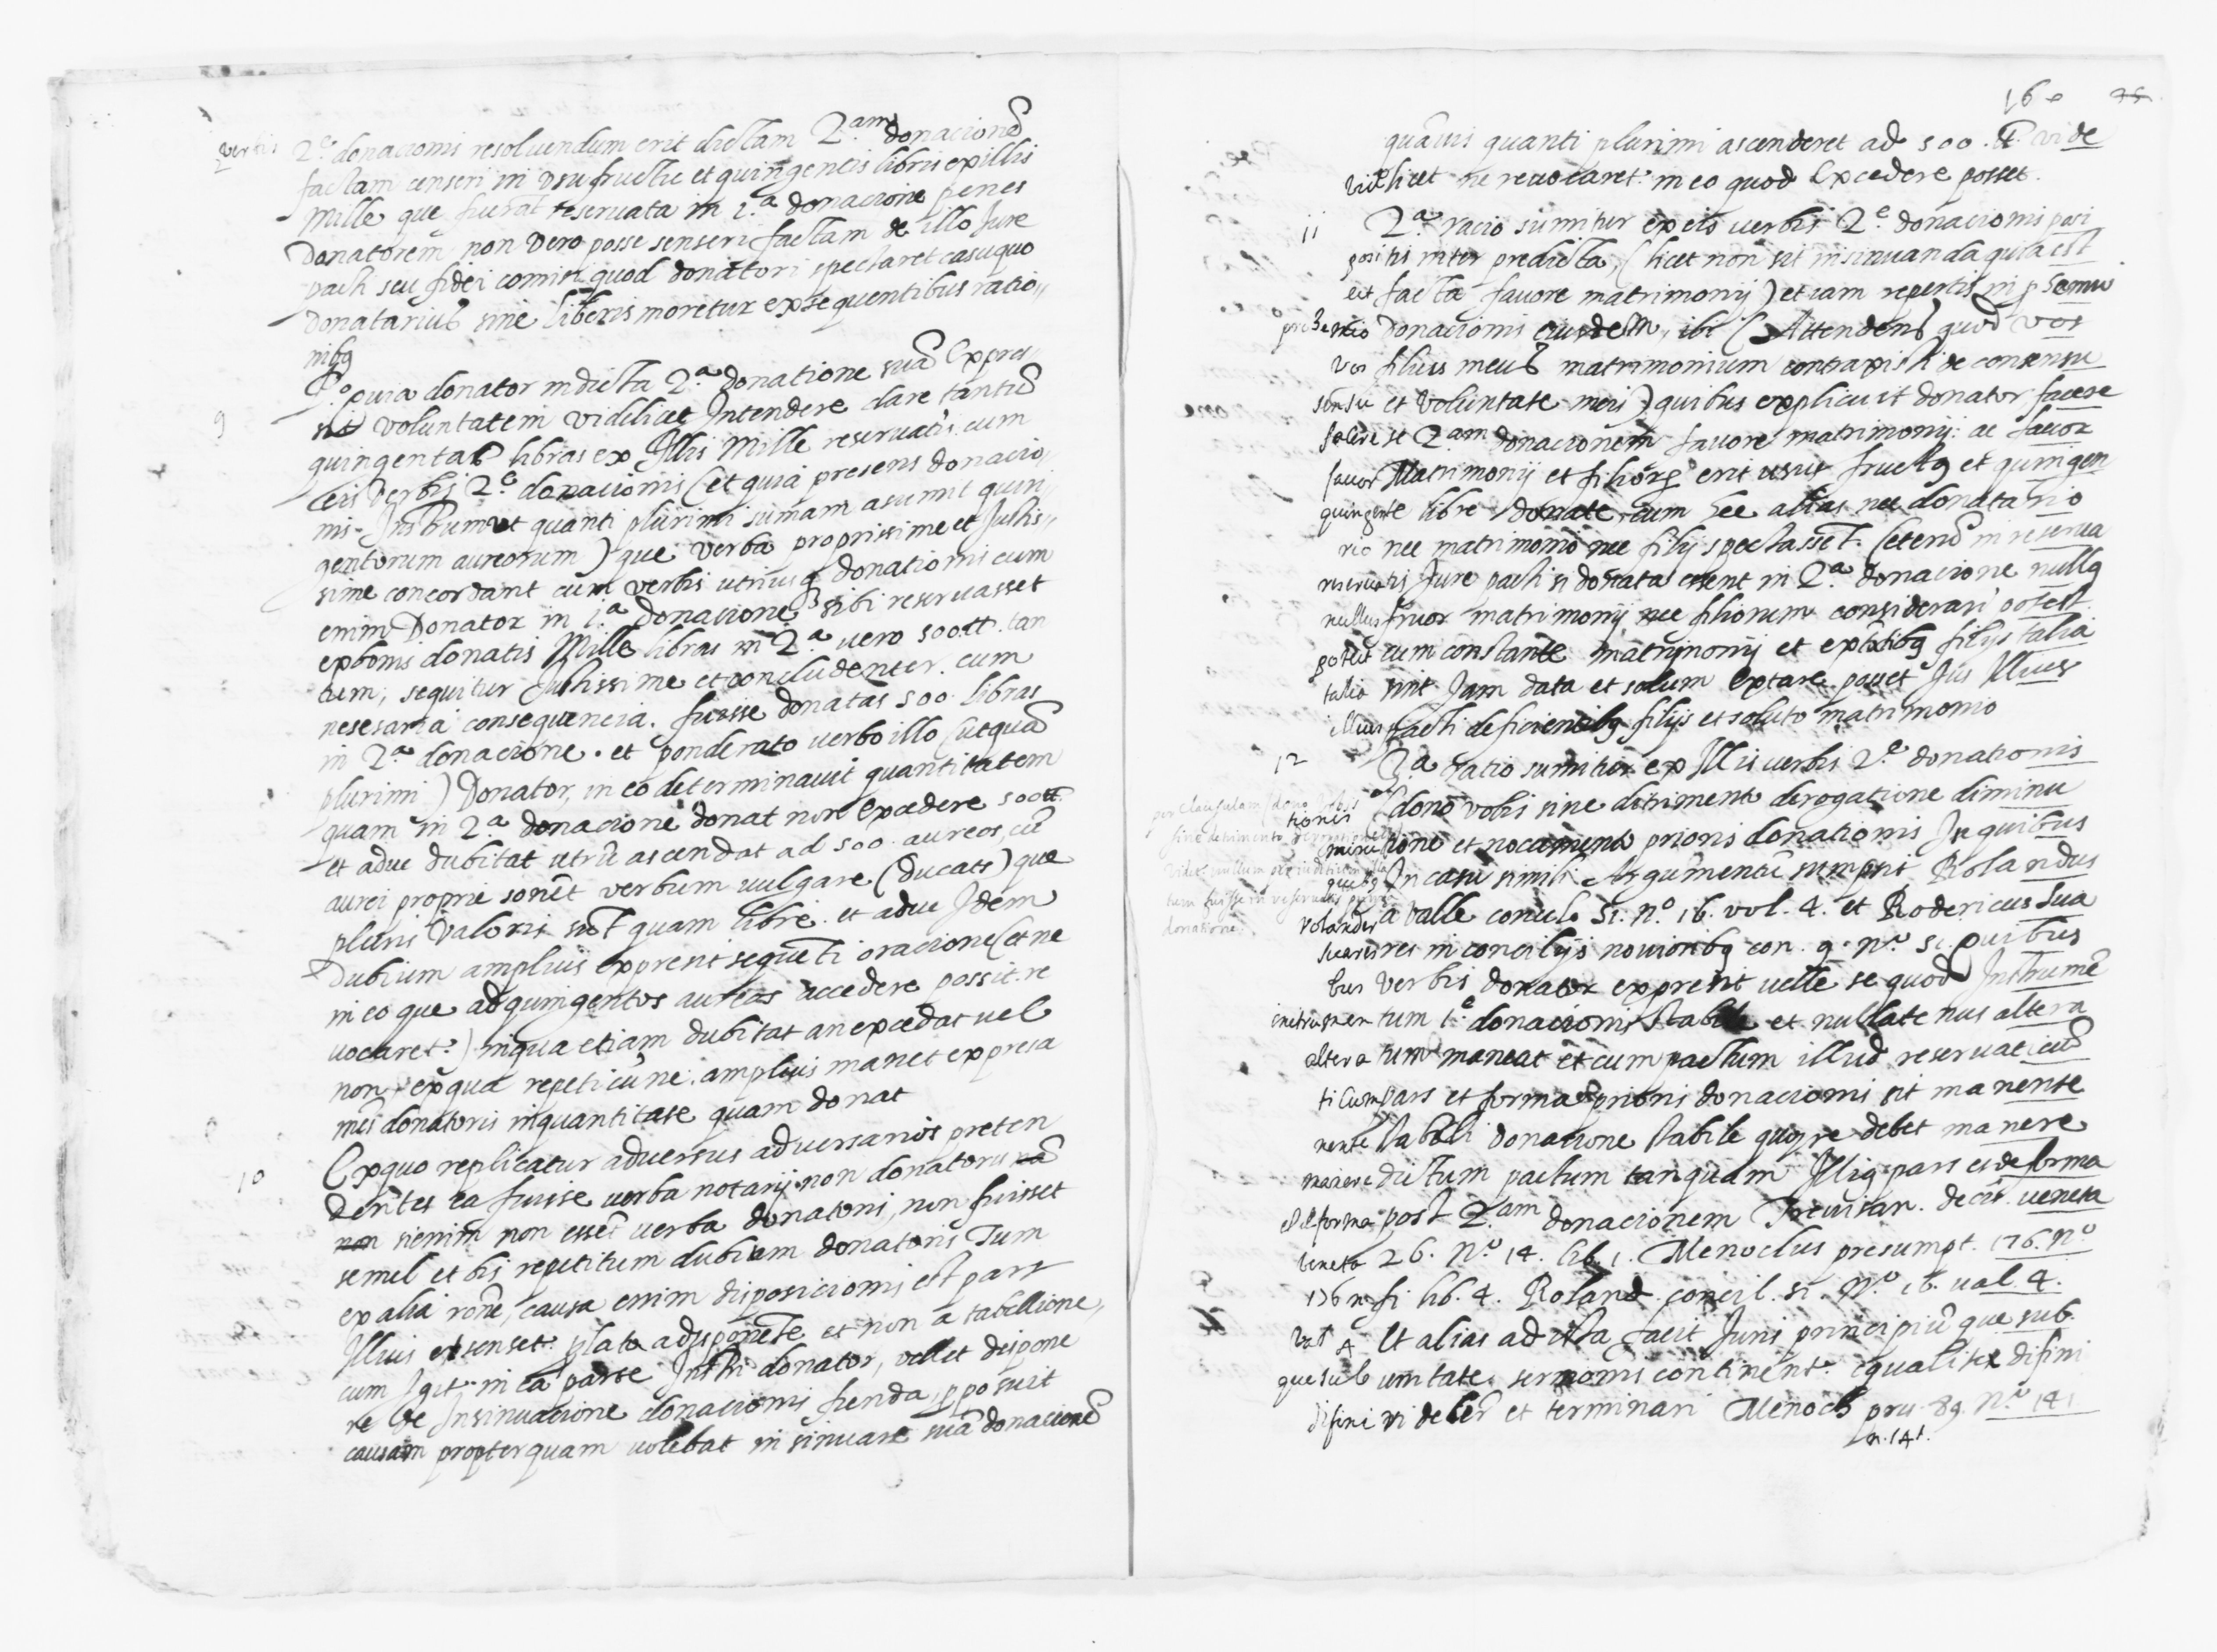 verbis 2.e donacionis resoluendum erit dictam 2.am donacionē
factam censeri in vsufructu et quingentis libris ex illis
mille que fuerāt reseruata in 1.a donacione penes
Donatorem non vero posse senseri factam de illo Jure
pacti seu fidei comisi quod donatori spectaret casuquo
Donatarius sine liberis moretur ex sequentibus ratio,,
nibq
9 P.o quia donator in dicta 2.a donatione suā Expres,,
sit voluntatem videlicet Intendere dare tantū
quingentas libras ex Illis Mille reseruatis cum
eis verbis 2.e donacionis (et quia presens donacio,,
nis Instrumēt quanti plurimi sumam asumit quin,,
gentorum aureorum) que verba proprissime et Justis,,
sime concordant cum verbis utriusq donationis cum
enim Donator in 1.a donacione sibi reseruasset
ex bonis donatis Mille libras in 2.a vero 500 ₶. tan
tum, sequitur Justissime et concludenter. cum
nesesaria consequencia. fuisse donatas 500 libras
in 2.a donacione. et ponderato uerbo illo (ut quā
plurimi) Donator, in eo determinauit quantitatem
quam in 2.a donacione donat non Excedere 500 ₶.
et adue dubitat utrū ascendat ad 500 aureos, cū
aurei proprie sonēt verbum uulgare (ducats) que
pluris valoris sūt quam libre. et adue Idem
Dubium amplius expresit sequēti oracione (et ne
in eo que ad quingentos aureos accedere possit re
uocaret.r) in qua etiam dubitat an excedat uel
non, ex qua repeticiūne amplius manet expresa
mēs donatoris in quantitate quam donat
10 Ex quo replicatur aduersus aduersarios preten
dentes ea fuisse uerba notarij non donatoris nā
non si enim non essēt verba donatoris, non fuisset
semel et bis repetitum dubium donatoris Tum
ex alia rōne, causa enim disposicionis est pars
Illius et senset.r plata a disponēte et non a tabellione,,
cum Igit.r in ea parte Instri donator, vellet dispone
re de Insinuacione donacionis fienda, pposuit
causam propter quam uolebat insinuare suā donacionē
160 25
quāuis quanti plurimi ascenderet ad 500 ₶. vide
videlicet ne reuocaret.r in eo quod Excedere posset.
11 2.a racio sumitur ex eis uerbis 2.e donacionis posi
positis inter predicta, (licet non sit insinuanda quia est
est facta fauore matrimonij) etiam repertis in pohemi
prohemio Donacionis eiusdem, ibi (Attendens quod vos
vos filius meus matrimonium contraxisti de consensu
sensu et voluntate meis) quibus explicuit donator facere
facere se 2.am donacionem fauore matrimonij ac fauor
fauor Matrimonij et filiorū erit usus fructq et quingen
quingente libre donate, cum hee alias nec donatario
rio nec matrimonio nec filijs spectassēt. (ceterū in reserua
reseruatis Jure pacti si donata esent in 2.a donacione nullq
nullus fauor matrimonij nec filiorum considerari potest
potest cum constante matrimonij et extātibq filijs talia
talia sint Jam data et solum Extare posset Jus Illius
illius pacti deficientibq filijs et soluto matrimonio
12 3.a ratio sumitur ex Illis uerbis 2.e donationis
per clausulam dono vobis
sine detrimento derogatione
videt.r nullum
donatione
tionis (dono vobis sine ditrimento derogatione diminu
minu tione et nocumento prioris donationis Jn quibus
quibq In casu simili Argumentū sumpsit Rolandus
rolandus a Valle consulo 51. n.o 16. vol. 4. et Rodericus Sua
suares res in concilijs nouioribq con. 9. n.o 51. quibus
bus verbis donator expresit uelle se quod Instrumē
instrumen tum 1.e donacionis Stabile et nullatenus altera
altera tum maneat et cum pactum illud reseruaticiū
ticium pars et forma prioris donacionis sit manente
nente stabili donacione stabile quoqre debet manere
manere dictum pactum tanquam Illiq pars et deforma
et deforma post 2.am donacionem Treuisan. decis. veneta
veneta 26. n.o 14. lib. 1. Menochus presumpt. 176. n.o
176 n.o fi. lib. 4. Roland. concil. 51. n.o 16. uol. 4.
vol 4 Et alias ad ista facit Juris principiū que sub
que sub unitate sermonis continent.r equaliter difini
difini ri debēt et terminari Menoch pres. 89. n.o 141
n. 141.